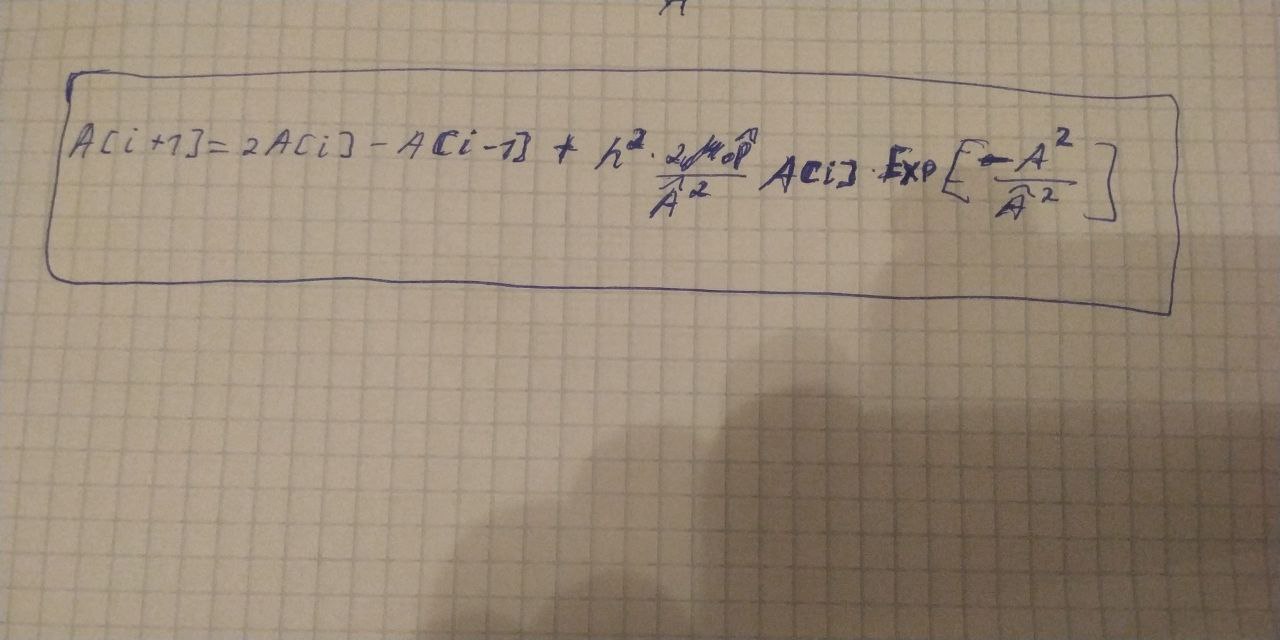 A[i+1] = 2A[i] - A[i-1] + h² · 2μ₀P̂/Â² A[i] · Exp[-A²/Â²]